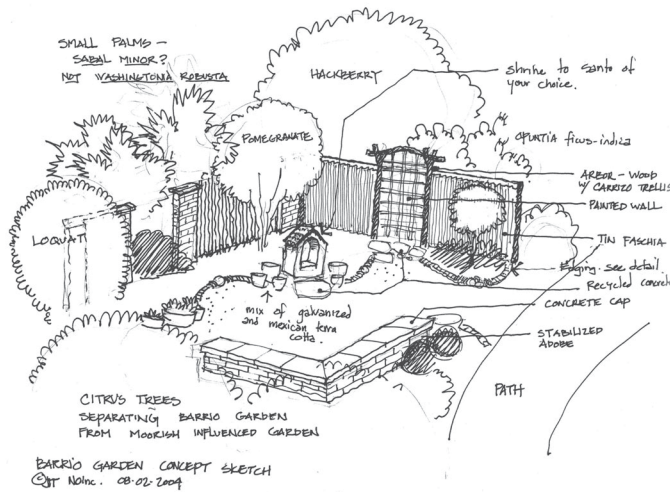 SMALL PALMS -
SABAL MINOR?
NOT WASHINGTONIA ROBUSTA
HACKBERRY
shrine to santo of
your choice.
POMEGRANATE
OPUNTIA ficus-indica
ARBOR - WOOD
W/ CARRIZO TRELLIS
PAINTED WALL
LOQUAT
TIN FASCHIA
Edging: see detail
Recycled concrete
mix of galvanized
and mexican terra
cotta.
CONCRETE CAP
STABILIZED
ADOBE
PATH
CITRUS TREES
SEPARATING BARRIO GARDEN
FROM MOORISH INFLUENCED GARDEN
BARRIO GARDEN CONCEPT SKETCH
NOInc. 08-02-2004